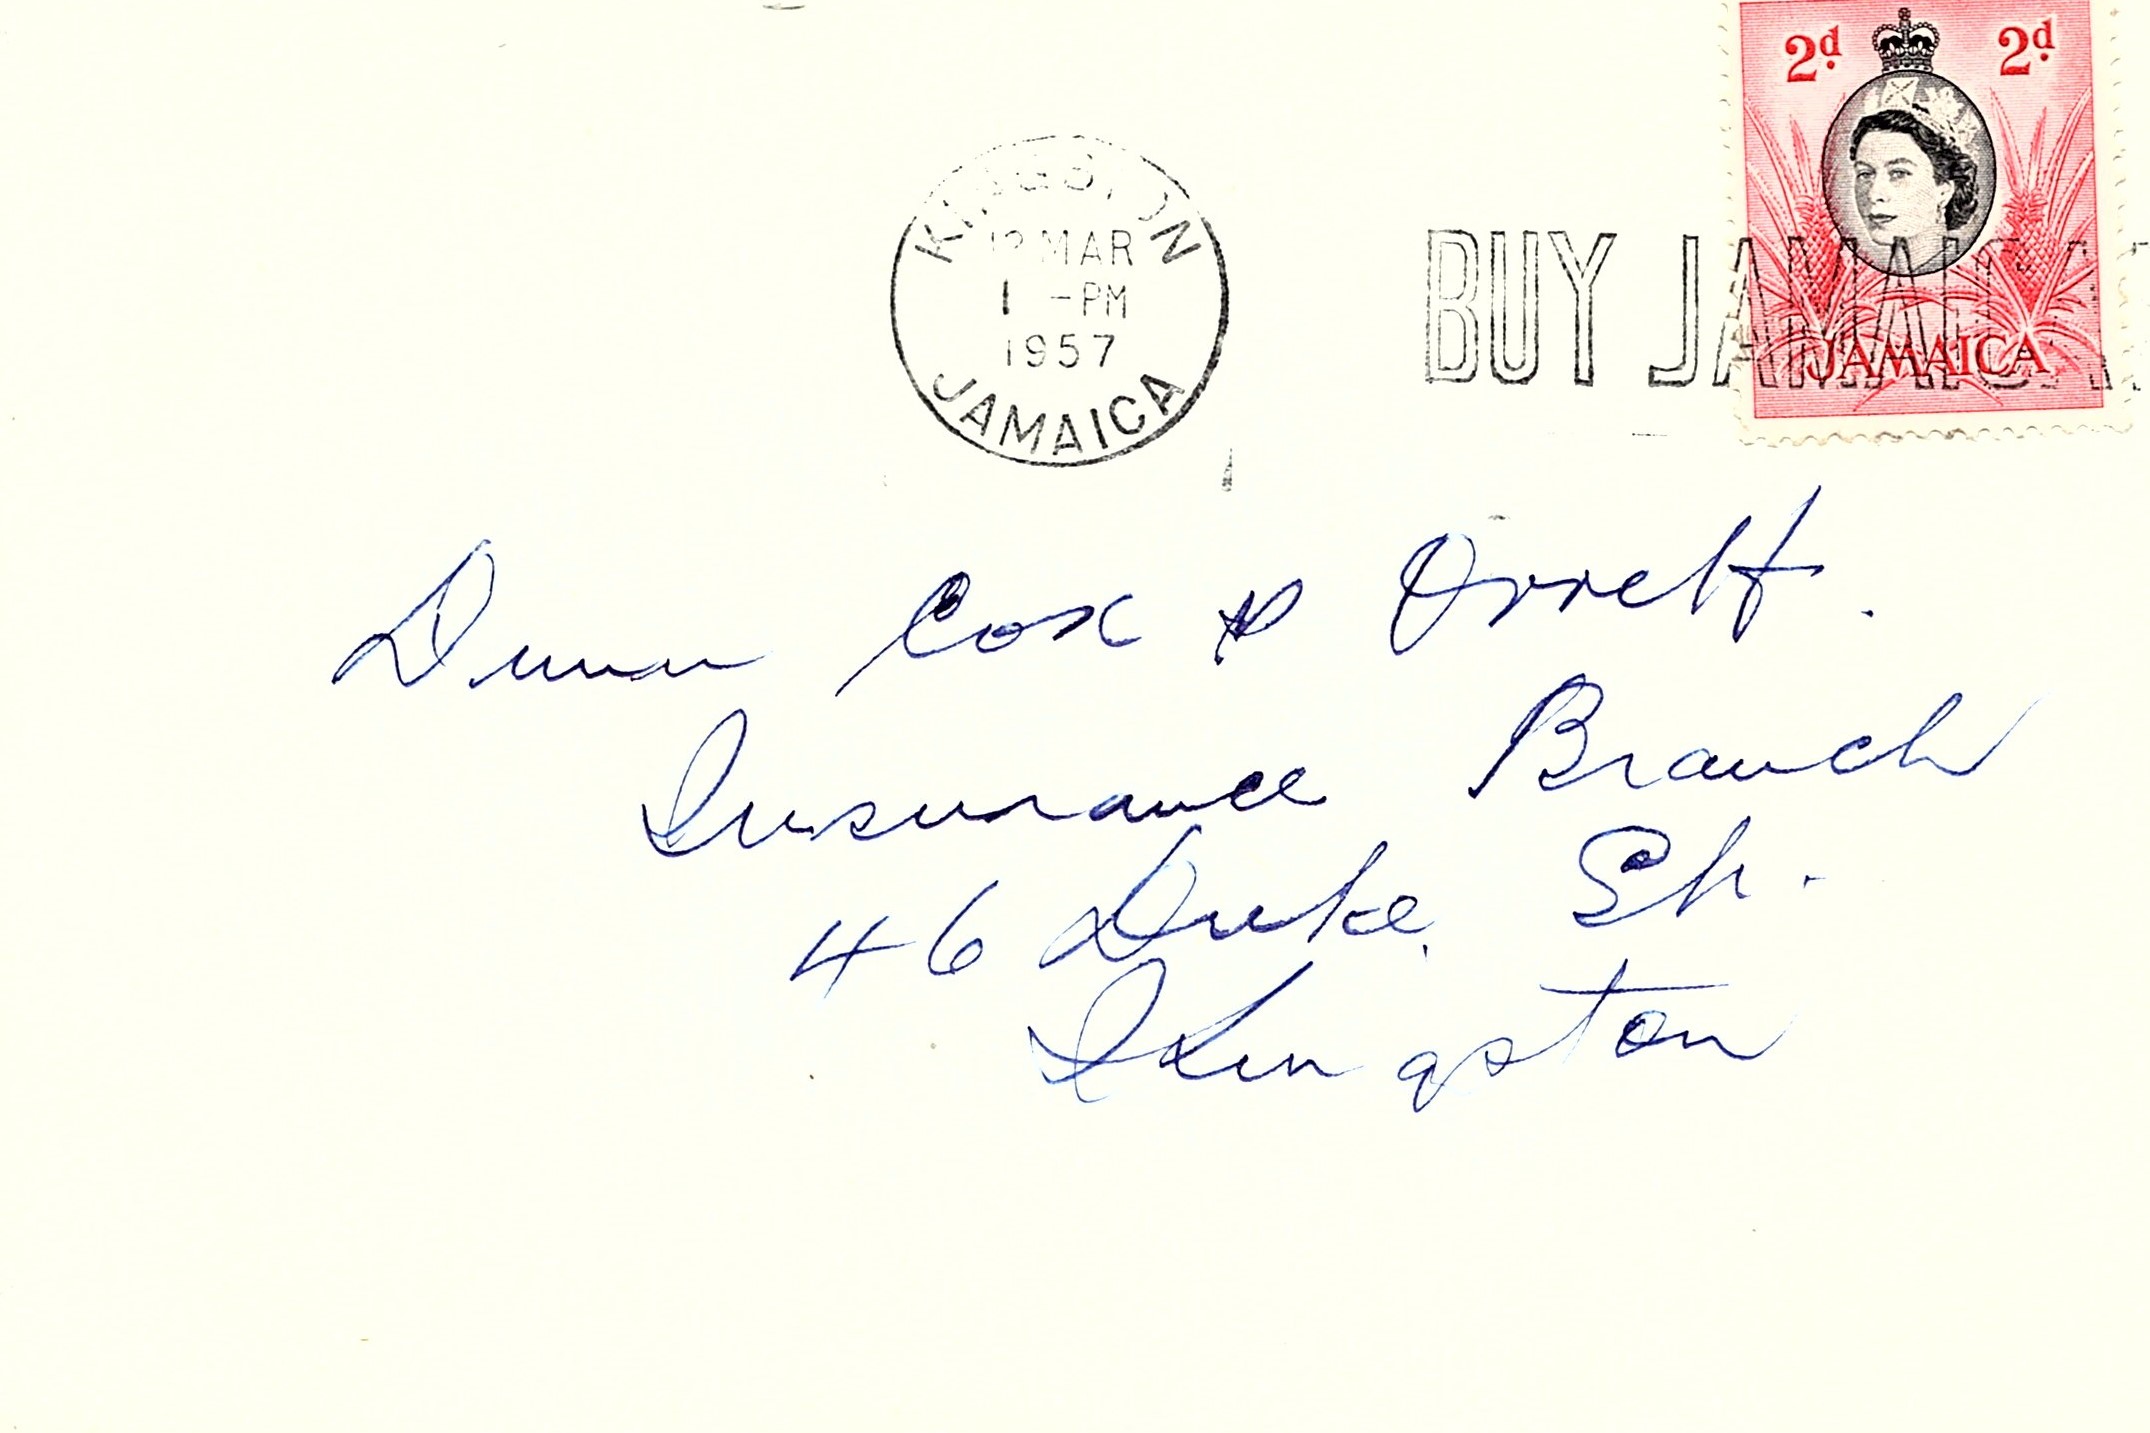 2d 2d
KINGSTON
12 MAR
1 -PM
1957
JAMAICA
BUY JAMAICAN
JAMAICA
Dunn Cox & Orrett.
Insurance Branch
46 Duke St.
Kingston